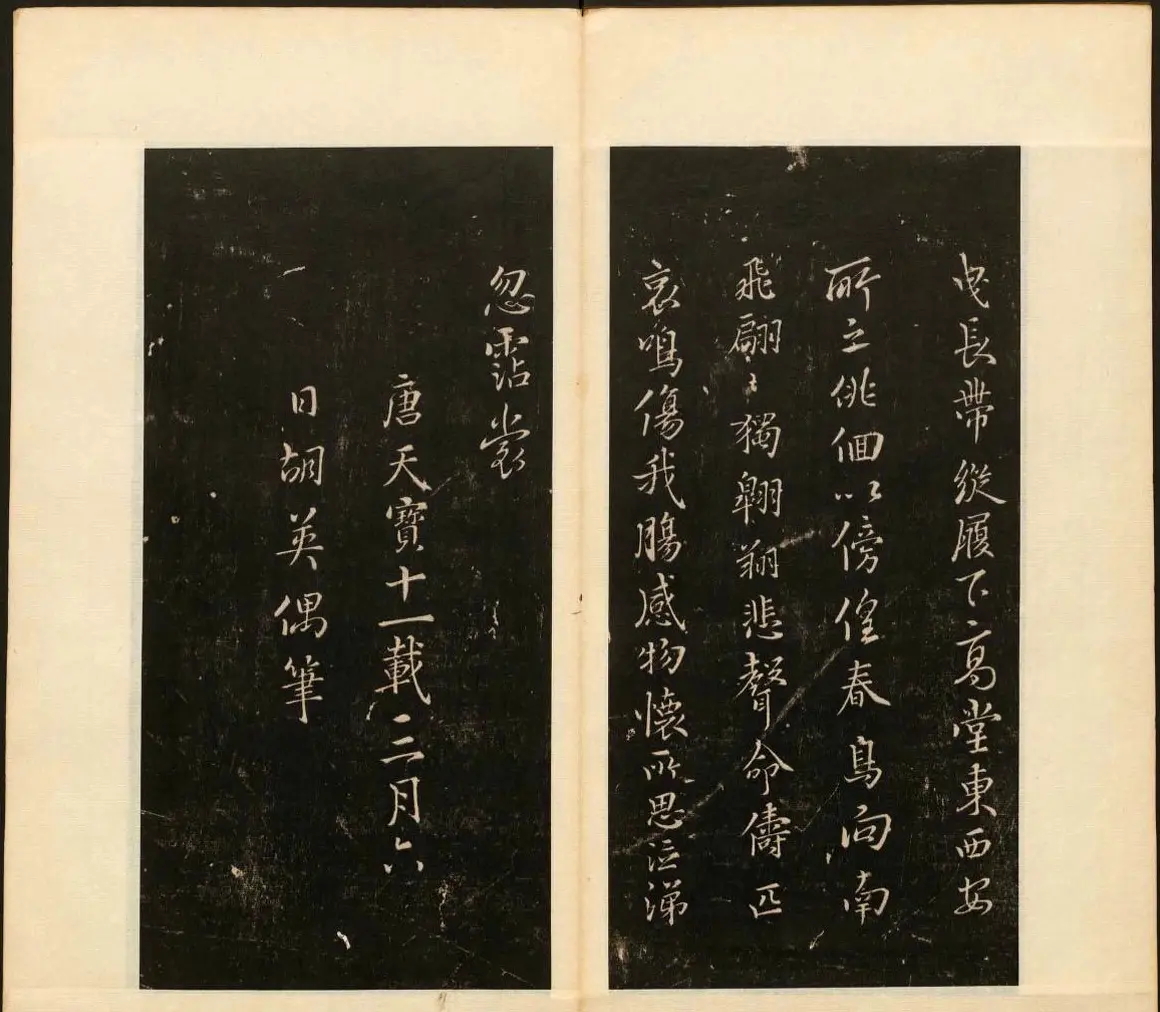 曳長帶縱履下高堂東西安
所之徘徊以傍偟春鳥向南
飛翩〻獨翱翔悲聲命儔匹
哀鳴傷我腸感物懷所思泣涕
忽霑裳
唐天寶十一載二月六
日胡英偶筆